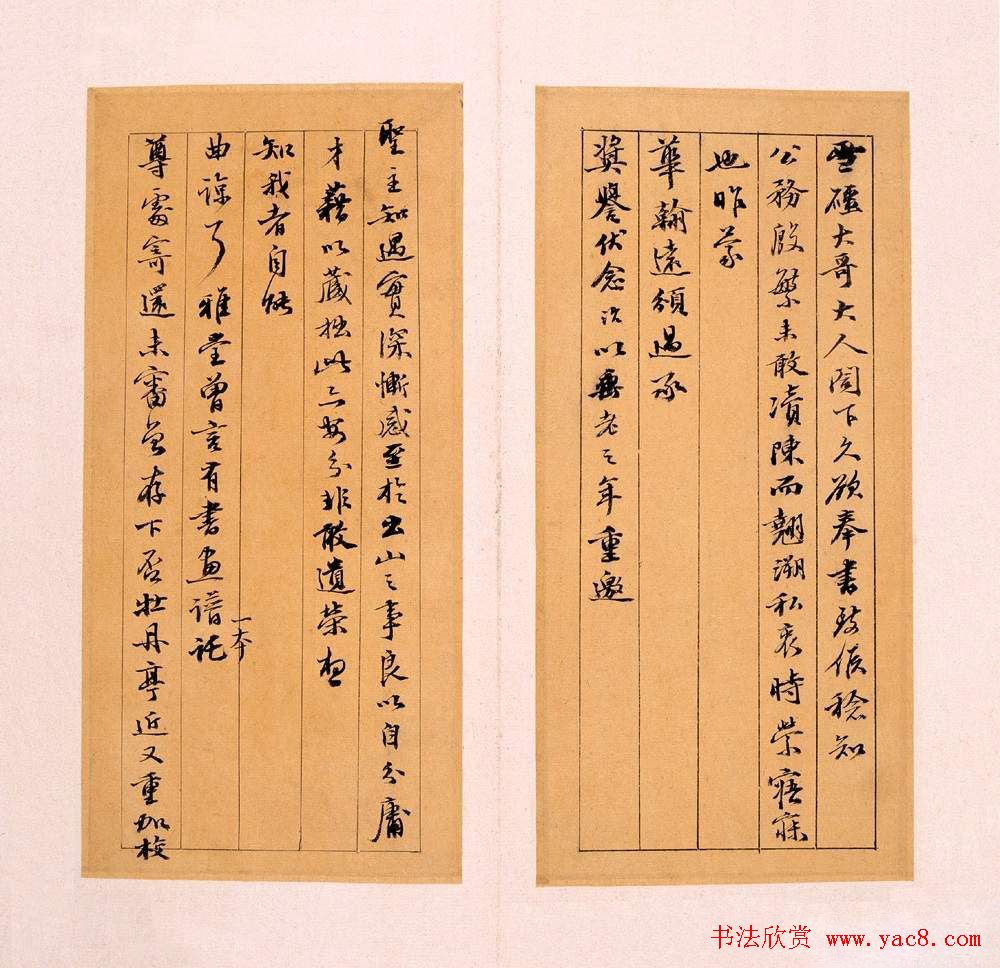 雪礓大哥大人閣下久欲奉書致候稔知
公務殷繁未敢瀆陳而翹溯私衷時縈寤寐
也昨蒙
華翰遠頒過承
獎譽伏念汎以垂老之年重邀
聖主知遇實深慚感至於出山之事良以自分庸
才藉以藏拙此亦安分非敢遺榮想
知我者自能
曲諒乃雅堂曾言有書画譜一本託
尊處寄還未審曾存下否牡丹亭近又重加校
书法欣赏 www.yac8.com